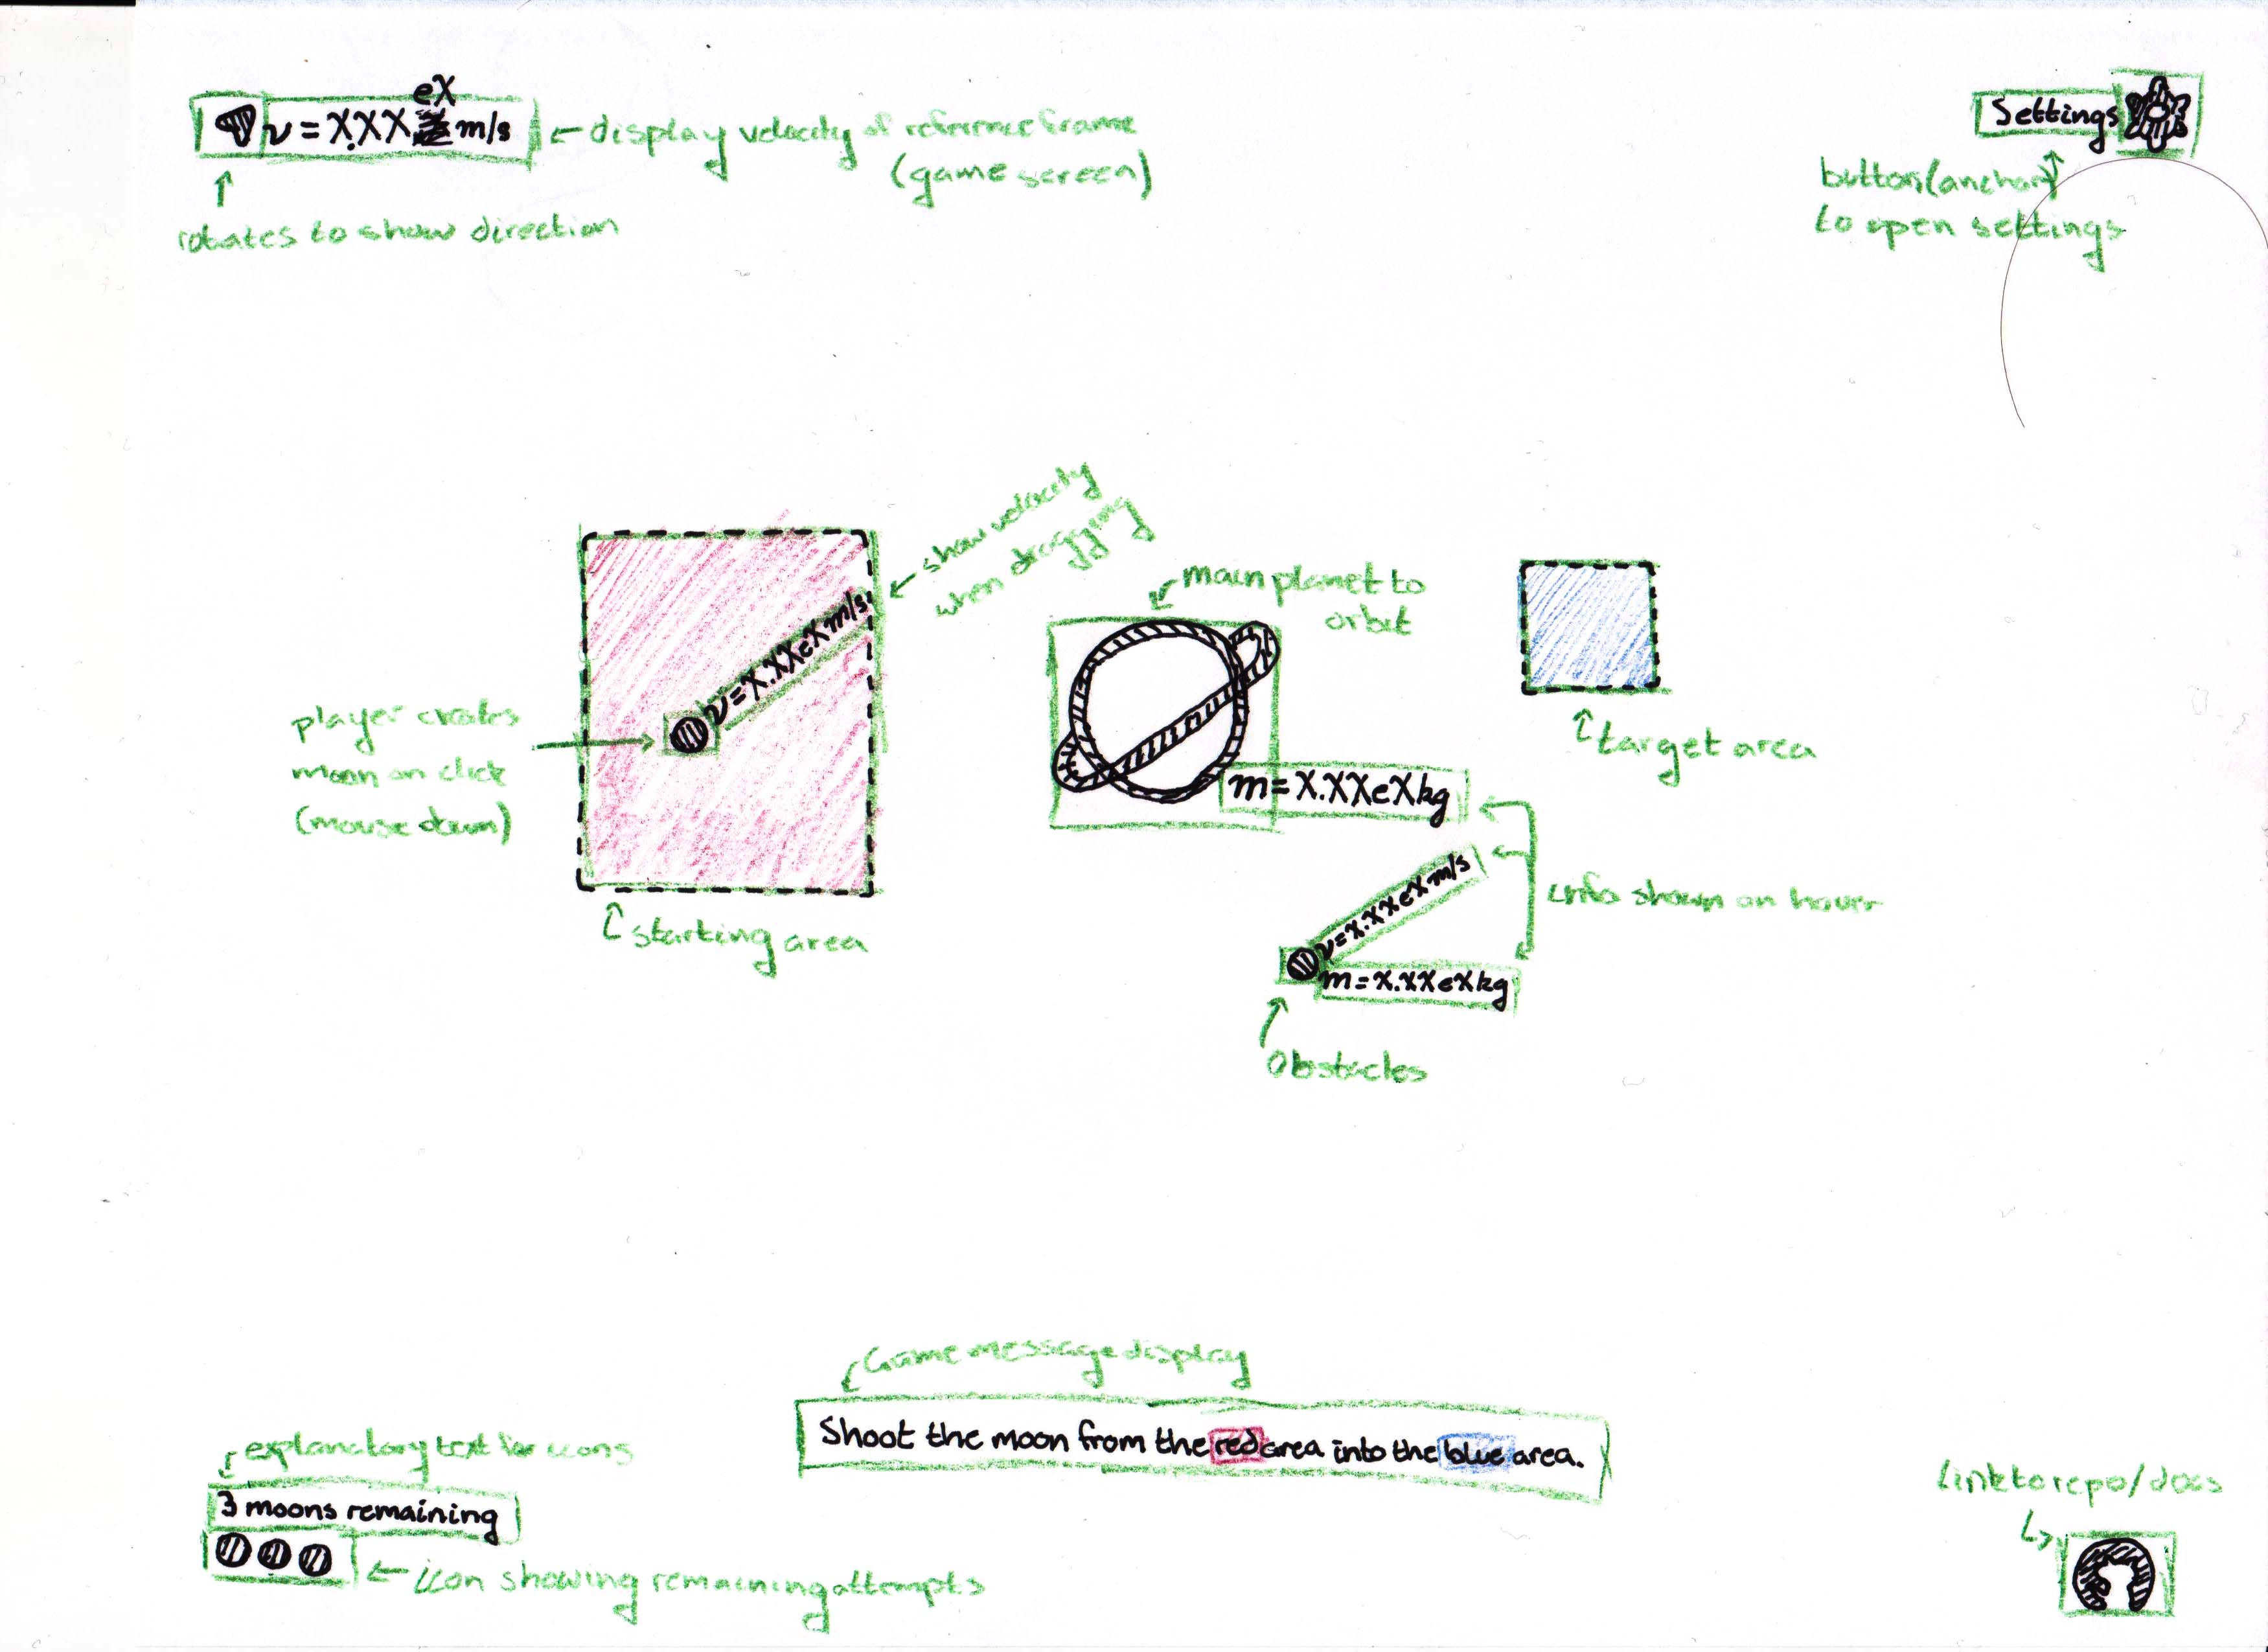 eX
v = X.XX m/s
← display velocity of reference frame
(game screen)
rotates to show direction
Settings
button (anchor)
to open settings
show velocity
when dragging
v = X.XXeX m/s
player creates
moon on click
(mouse down)
starting area
main planet to
orbit
m = X.XXeX kg
target area
v = X.XXeX m/s
m = X.XXeX kg
info shown on hover
Obstacles
Game message display
Shoot the moon from the red area into the blue area.
explanatory text for icons
3 moons remaining
← icon showing remaining attempts
Link to repo/docs